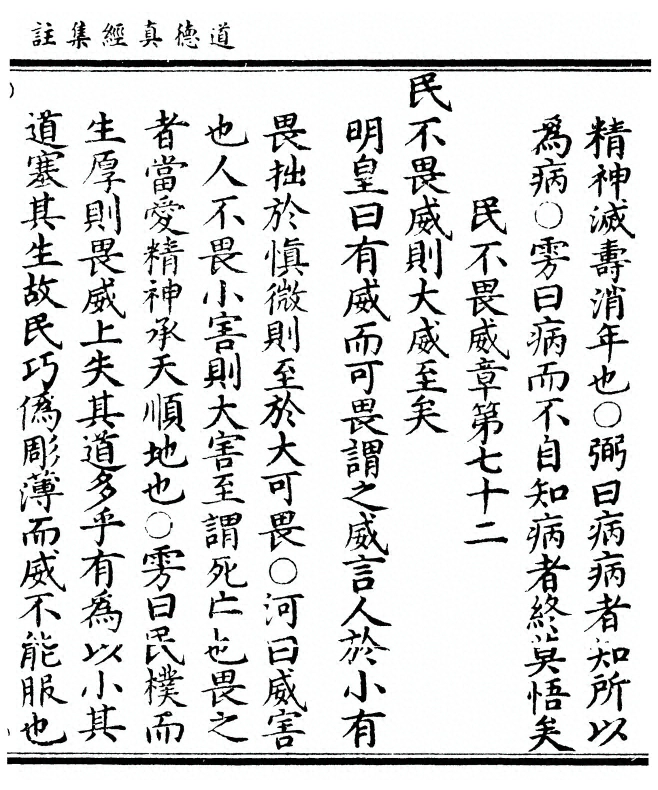 道德真經集註
精神滅壽消年也○弼曰病病者知所以
為病○雱曰病而不自知病者終莫悟矣
民不畏威章第七十二
民不畏威則大威至矣
明皇曰有威而可畏謂之威言人於小有
畏拙於慎微則至於大可畏○河曰威害
也人不畏小害則大害至謂死亡也畏之
者當愛精神承天順地也○雱曰民樸而
生厚則畏威上失其道多乎有為以小其
道塞其生故民巧偽彫薄而威不能服也